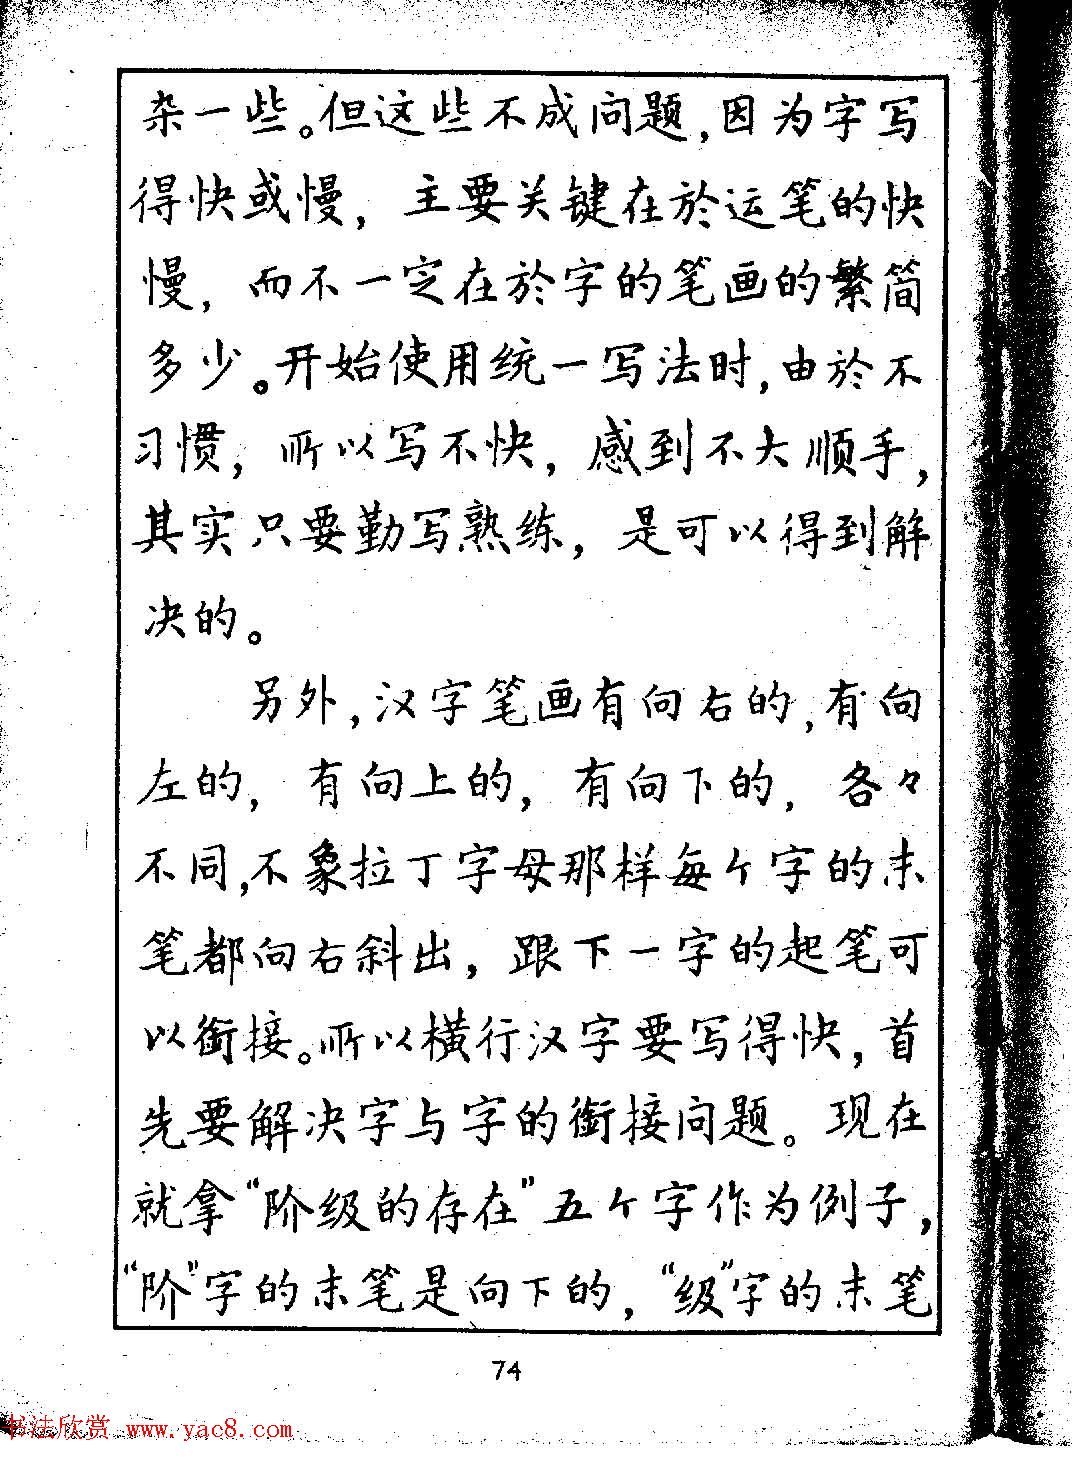 杂一些。但这些不成问题,因为字写
得快或慢，主要关键在於运笔的快
慢，而不一定在於字的笔画的繁简
多少。开始使用统一写法时,由於不
习惯，所以写不快，感到不大顺手，
其实只要勤写熟练，是可以得到解
决的。
另外,汉字笔画有向右的,有向
左的，有向上的，有向下的，各々
不同,不象拉丁字母那样每个字的末
笔都向右斜出，跟下一字的起笔可
以衔接。所以横行汉字要写得快，首
先要解决字与字的衔接问题。现在
就拿“阶级的存在”五个字作为例子，
“阶”字的末笔是向下的，“级”字的末笔
74
书法欣赏 www.yac8.com